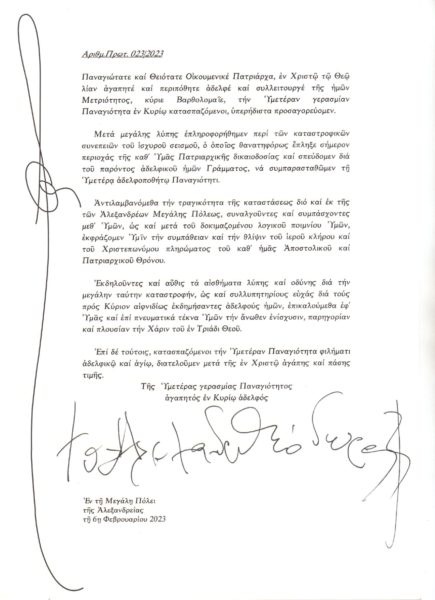 Ἀριθμ.Πρωτ. 023/2023
Παναγιώτατε καί Θειότατε Οἰκουμενικέ Πατριάρχα, ἐν Χριστῷ τῷ Θεῷ
λίαν ἀγαπητέ καί περιπόθητε ἀδελφέ καί συλλειτουργέ τῆς ἡμῶν
Μετριότητος, κύριε Βαρθολομαῖε, τήν Ὑμετέραν γερασμίαν
Παναγιότητα ἐν Κυρίῳ κατασπαζόμενοι, ὑπερήδιστα προσαγορεύομεν.
Μετά μεγάλης λύπης ἐπληροφορήθημεν περί τῶν καταστροφικῶν
συνεπειῶν τοῦ ἰσχυροῦ σεισμοῦ, ὁ ὁποῖος θανατηφόρως ἔπληξε σήμερον
περιοχάς τῆς καθ' Ὑμᾶς Πατριαρχικῆς δικαιοδοσίας καί σπεύδομεν διά
τοῦ παρόντος ἀδελφικοῦ ἡμῶν Γράμματος, νά συμπαρασταθῶμεν τῇ
Ὑμετέρᾳ ἀδελφοποθήτῳ Παναγιότητι.
Ἀντιλαμβανόμεθα τήν τραγικότητα τῆς καταστάσεως διό καί ἐκ τῆς
τῶν Ἀλεξανδρέων Μεγάλης Πόλεως, συναλγοῦντες καί συμπάσχοντες
μεθ' Ὑμῶν, ὡς καί μετά τοῦ δοκιμαζομένου λογικοῦ ποιμνίου Ὑμῶν,
ἐκφράζομεν Ὑμῖν τήν συμπάθειαν καί τήν θλῖψιν τοῦ ἱεροῦ κλήρου καί
τοῦ Χριστεπωνύμου πληρώματος τοῦ καθ' ἡμᾶς Ἀποστολικοῦ καί
Πατριαρχικοῦ Θρόνου.
Ἐκδηλοῦντες καί αὖθις τά αἰσθήματα λύπης καί ὀδύνης διά τήν
μεγάλην ταύτην καταστροφήν, ὡς καί συλλυπητηρίους εὐχάς διά τούς
πρός Κύριον αἰφνιδίως ἐκδημήσαντες ἀδελφούς ἡμῶν, ἐπικαλούμεθα ἐφ'
Ὑμᾶς καί ἐπί πνευματικά τέκνα Ὑμῶν τήν ἄνωθεν ἐνίσχυσιν, παρηγορίαν
καί πλουσίαν τήν Χάριν τοῦ ἐν Τριάδι Θεοῦ.
Ἐπί δέ τούτοις, κατασπαζόμενοι τήν Ὑμετέραν Παναγιότητα φιλήματι
ἀδελφικῷ καί ἁγίῳ, διατελοῦμεν μετά τῆς ἐν Χριστῷ ἀγάπης καί πάσης
τιμῆς.
Τῆς Ὑμετέρας γερασμίας Παναγιότητος
ἀγαπητός ἐν Κυρίῳ ἀδελφός
Ἐν τῇ Μεγάλῃ Πόλει
τῆς Ἀλεξανδρείας
τῇ 6ῃ Φεβρουαρίου 2023